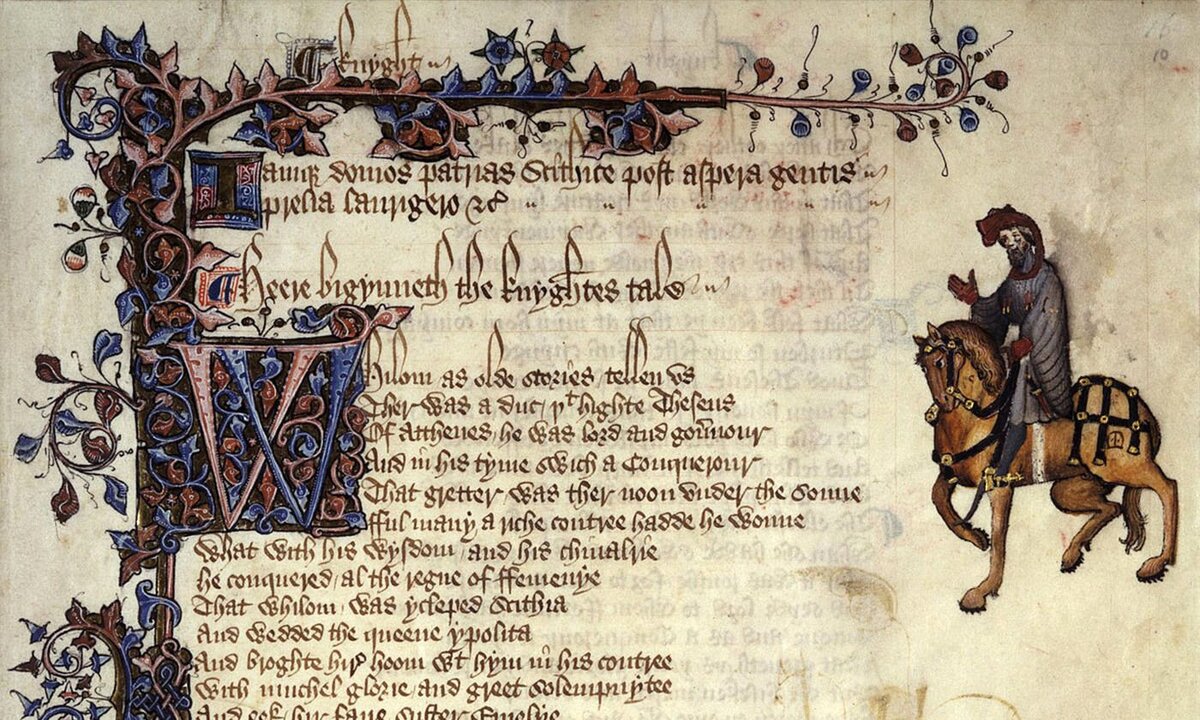 ¶ Knyght
Iamque domos patrias Scithice post aspera gentis
prelia laurigero &c̃
¶ Heere bigynneth the knyghtes tale
Whilom as olde stories tellen vs
Ther was a duc / þt highte Theseus
Of Atthenes / he was lord and gou̾nour
And in his tyme swich a Conquerour
That gretter was ther noon vnder the sonne
fful many a riche contree hadde he wonne
What with his wysdom and his chiualrie
he conquered / al the regne of ffemenye
That whilom was ycleped Scithia
And wedded the queene ypolita
And broghte hir̾ hoom wt hym in his contree
With muchel glorie and greet solempnytee
And eek hir faire suster Emelye